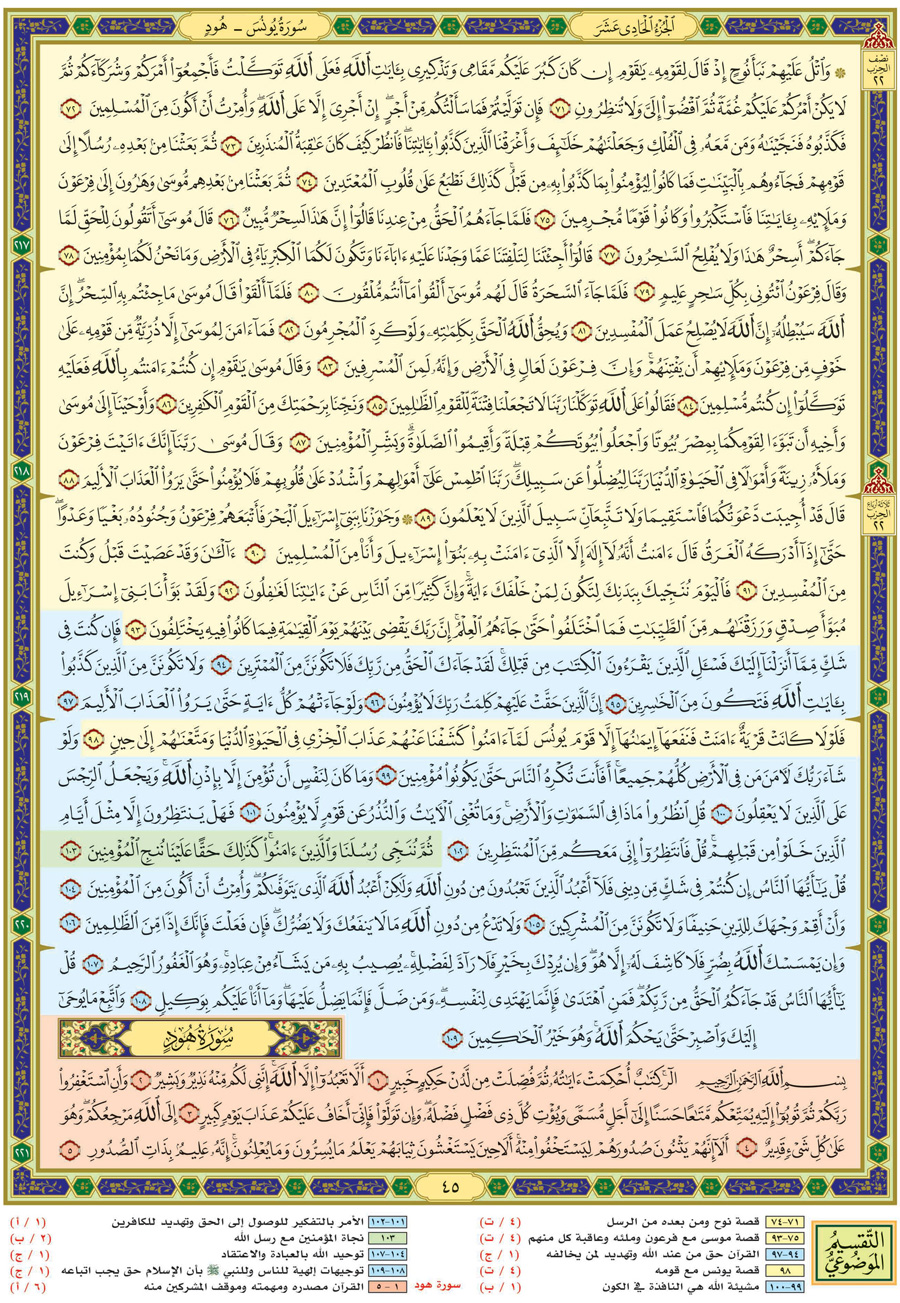 الجُزْءُ الْحَادِي عَشَرَ
سُورَةُ يُونُسَ - هُودٍ
نصف الحزب ٢٢
۞ وَٱتْلُ عَلَيْهِمْ نَبَأَ نُوحٍ إِذْ قَالَ لِقَوْمِهِۦ يَٰقَوْمِ إِن كَانَ كَبُرَ عَلَيْكُم مَّقَامِى وَتَذْكِيرِى بِـَٔايَٰتِ ٱللَّهِ فَعَلَى ٱللَّهِ تَوَكَّلْتُ فَأَجْمِعُوٓا۟ أَمْرَكُمْ وَشُرَكَآءَكُمْ ثُمَّ
لَا يَكُنْ أَمْرُكُمْ عَلَيْكُمْ غُمَّةً ثُمَّ ٱقْضُوٓا۟ إِلَىَّ وَلَا تُنظِرُونِ ٧١ فَإِن تَوَلَّيْتُمْ فَمَا سَأَلْتُكُم مِّنْ أَجْرٍ إِنْ أَجْرِىَ إِلَّا عَلَى ٱللَّهِ وَأُمِرْتُ أَنْ أَكُونَ مِنَ ٱلْمُسْلِمِينَ ٧٢
فَكَذَّبُوهُ فَنَجَّيْنَٰهُ وَمَن مَّعَهُۥ فِى ٱلْفُلْكِ وَجَعَلْنَٰهُمْ خَلَٰٓئِفَ وَأَغْرَقْنَا ٱلَّذِينَ كَذَّبُوا۟ بِـَٔايَٰتِنَا فَٱنظُرْ كَيْفَ كَانَ عَٰقِبَةُ ٱلْمُنذَرِينَ ٧٣ ثُمَّ بَعَثْنَا مِنۢ بَعْدِهِۦ رُسُلًا إِلَىٰ
قَوْمِهِمْ فَجَآءُوهُم بِٱلْبَيِّنَٰتِ فَمَا كَانُوا۟ لِيُؤْمِنُوا۟ بِمَا كَذَّبُوا۟ بِهِۦ مِن قَبْلُ كَذَٰلِكَ نَطْبَعُ عَلَىٰ قُلُوبِ ٱلْمُعْتَدِينَ ٧٤ ثُمَّ بَعَثْنَا مِنۢ بَعْدِهِم مُّوسَىٰ وَهَٰرُونَ إِلَىٰ فِرْعَوْنَ
وَمَلَإِي۟هِۦ بِـَٔايَٰتِنَا فَٱسْتَكْبَرُوا۟ وَكَانُوا۟ قَوْمًا مُّجْرِمِينَ ٧٥ فَلَمَّا جَآءَهُمُ ٱلْحَقُّ مِنْ عِندِنَا قَالُوٓا۟ إِنَّ هَٰذَا لَسِحْرٌ مُّبِينٌ ٧٦ قَالَ مُوسَىٰٓ أَتَقُولُونَ لِلْحَقِّ لَمَّا
٢١٧
جَآءَكُمْ أَسِحْرٌ هَٰذَا وَلَا يُفْلِحُ ٱلسَّٰحِرُونَ ٧٧ قَالُوٓا۟ أَجِئْتَنَا لِتَلْفِتَنَا عَمَّا وَجَدْنَا عَلَيْهِ ءَابَآءَنَا وَتَكُونَ لَكُمَا ٱلْكِبْرِيَآءُ فِى ٱلْأَرْضِ وَمَا نَحْنُ لَكُمَا بِمُؤْمِنِينَ ٧٨
وَقَالَ فِرْعَوْنُ ٱئْتُونِى بِكُلِّ سَٰحِرٍ عَلِيمٍ ٧٩ فَلَمَّا جَآءَ ٱلسَّحَرَةُ قَالَ لَهُم مُّوسَىٰٓ أَلْقُوا۟ مَآ أَنتُم مُّلْقُونَ ٨٠ فَلَمَّآ أَلْقَوْا۟ قَالَ مُوسَىٰ مَا جِئْتُم بِهِ ٱلسِّحْرُ إِنَّ
ٱللَّهَ سَيُبْطِلُهُۥٓ إِنَّ ٱللَّهَ لَا يُصْلِحُ عَمَلَ ٱلْمُفْسِدِينَ ٨١ وَيُحِقُّ ٱللَّهُ ٱلْحَقَّ بِكَلِمَٰتِهِۦ وَلَوْ كَرِهَ ٱلْمُجْرِمُونَ ٨٢ فَمَآ ءَامَنَ لِمُوسَىٰٓ إِلَّا ذُرِّيَّةٌ مِّن قَوْمِهِۦ عَلَىٰ
خَوْفٍ مِّن فِرْعَوْنَ وَمَلَإِي۟هِمْ أَن يَفْتِنَهُمْ وَإِنَّ فِرْعَوْنَ لَعَالٍ فِى ٱلْأَرْضِ وَإِنَّهُۥ لَمِنَ ٱلْمُسْرِفِينَ ٨٣ وَقَالَ مُوسَىٰ يَٰقَوْمِ إِن كُنتُمْ ءَامَنتُم بِٱللَّهِ فَعَلَيْهِ
تَوَكَّلُوٓا۟ إِن كُنتُم مُّسْلِمِينَ ٨٤ فَقَالُوا۟ عَلَى ٱللَّهِ تَوَكَّلْنَا رَبَّنَا لَا تَجْعَلْنَا فِتْنَةً لِّلْقَوْمِ ٱلظَّٰلِمِينَ ٨٥ وَنَجِّنَا بِرَحْمَتِكَ مِنَ ٱلْقَوْمِ ٱلْكَٰفِرِينَ ٨٦ وَأَوْحَيْنَآ إِلَىٰ مُوسَىٰ
وَأَخِيهِ أَن تَبَوَّءَا لِقَوْمِكُمَا بِمِصْرَ بُيُوتًا وَٱجْعَلُوا۟ بُيُوتَكُمْ قِبْلَةً وَأَقِيمُوا۟ ٱلصَّلَوٰةَ وَبَشِّرِ ٱلْمُؤْمِنِينَ ٨٧ وَقَالَ مُوسَىٰ رَبَّنَآ إِنَّكَ ءَاتَيْتَ فِرْعَوْنَ
٢١٨
وَمَلَأَهُۥ زِينَةً وَأَمْوَٰلًا فِى ٱلْحَيَوٰةِ ٱلدُّنْيَا رَبَّنَا لِيُضِلُّوا۟ عَن سَبِيلِكَ رَبَّنَا ٱطْمِسْ عَلَىٰٓ أَمْوَٰلِهِمْ وَٱشْدُدْ عَلَىٰ قُلُوبِهِمْ فَلَا يُؤْمِنُوا۟ حَتَّىٰ يَرَوُا۟ ٱلْعَذَابَ ٱلْأَلِيمَ ٨٨
ثلاثة أرباع الحزب ٢٢
قَالَ قَدْ أُجِيبَت دَّعْوَتُكُمَا فَٱسْتَقِيمَا وَلَا تَتَّبِعَآنِّ سَبِيلَ ٱلَّذِينَ لَا يَعْلَمُونَ ٨٩ ۞ وَجَٰوَزْنَا بِبَنِىٓ إِسْرَٰٓءِيلَ ٱلْبَحْرَ فَأَتْبَعَهُمْ فِرْعَوْنُ وَجُنُودُهُۥ بَغْيًا وَعَدْوًا
حَتَّىٰٓ إِذَآ أَدْرَكَهُ ٱلْغَرَقُ قَالَ ءَامَنتُ أَنَّهُۥ لَآ إِلَٰهَ إِلَّا ٱلَّذِىٓ ءَامَنَتْ بِهِۦ بَنُوٓا۟ إِسْرَٰٓءِيلَ وَأَنَا۠ مِنَ ٱلْمُسْلِمِينَ ٩٠ ءَآلْـَٰٔنَ وَقَدْ عَصَيْتَ قَبْلُ وَكُنتَ
مِنَ ٱلْمُفْسِدِينَ ٩١ فَٱلْيَوْمَ نُنَجِّيكَ بِبَدَنِكَ لِتَكُونَ لِمَنْ خَلْفَكَ ءَايَةً وَإِنَّ كَثِيرًا مِّنَ ٱلنَّاسِ عَنْ ءَايَٰتِنَا لَغَٰفِلُونَ ٩٢ وَلَقَدْ بَوَّأْنَا بَنِىٓ إِسْرَٰٓءِيلَ
مُبَوَّأَ صِدْقٍ وَرَزَقْنَٰهُم مِّنَ ٱلطَّيِّبَٰتِ فَمَا ٱخْتَلَفُوا۟ حَتَّىٰ جَآءَهُمُ ٱلْعِلْمُ إِنَّ رَبَّكَ يَقْضِى بَيْنَهُمْ يَوْمَ ٱلْقِيَٰمَةِ فِيمَا كَانُوا۟ فِيهِ يَخْتَلِفُونَ ٩٣ فَإِن كُنتَ فِى
شَكٍّ مِّمَّآ أَنزَلْنَآ إِلَيْكَ فَسْـَٔلِ ٱلَّذِينَ يَقْرَءُونَ ٱلْكِتَٰبَ مِن قَبْلِكَ لَقَدْ جَآءَكَ ٱلْحَقُّ مِن رَّبِّكَ فَلَا تَكُونَنَّ مِنَ ٱلْمُمْتَرِينَ ٩٤ وَلَا تَكُونَنَّ مِنَ ٱلَّذِينَ كَذَّبُوا۟
٢١٩
بِـَٔايَٰتِ ٱللَّهِ فَتَكُونَ مِنَ ٱلْخَٰسِرِينَ ٩٥ إِنَّ ٱلَّذِينَ حَقَّتْ عَلَيْهِمْ كَلِمَتُ رَبِّكَ لَا يُؤْمِنُونَ ٩٦ وَلَوْ جَآءَتْهُمْ كُلُّ ءَايَةٍ حَتَّىٰ يَرَوُا۟ ٱلْعَذَابَ ٱلْأَلِيمَ ٩٧
فَلَوْلَا كَانَتْ قَرْيَةٌ ءَامَنَتْ فَنَفَعَهَآ إِيمَٰنُهَآ إِلَّا قَوْمَ يُونُسَ لَمَّآ ءَامَنُوا۟ كَشَفْنَا عَنْهُمْ عَذَابَ ٱلْخِزْىِ فِى ٱلْحَيَوٰةِ ٱلدُّنْيَا وَمَتَّعْنَٰهُمْ إِلَىٰ حِينٍ ٩٨ وَلَوْ
شَآءَ رَبُّكَ لَـَٔامَنَ مَن فِى ٱلْأَرْضِ كُلُّهُمْ جَمِيعًا أَفَأَنتَ تُكْرِهُ ٱلنَّاسَ حَتَّىٰ يَكُونُوا۟ مُؤْمِنِينَ ٩٩ وَمَا كَانَ لِنَفْسٍ أَن تُؤْمِنَ إِلَّا بِإِذْنِ ٱللَّهِ وَيَجْعَلُ ٱلرِّجْسَ
عَلَى ٱلَّذِينَ لَا يَعْقِلُونَ ١٠٠ قُلِ ٱنظُرُوا۟ مَاذَا فِى ٱلسَّمَٰوَٰتِ وَٱلْأَرْضِ وَمَا تُغْنِى ٱلْـَٔايَٰتُ وَٱلنُّذُرُ عَن قَوْمٍ لَّا يُؤْمِنُونَ ١٠١ فَهَلْ يَنتَظِرُونَ إِلَّا مِثْلَ أَيَّامِ
ٱلَّذِينَ خَلَوْا۟ مِن قَبْلِهِمْ قُلْ فَٱنتَظِرُوٓا۟ إِنِّى مَعَكُم مِّنَ ٱلْمُنتَظِرِينَ ١٠٢ ثُمَّ نُنَجِّى رُسُلَنَا وَٱلَّذِينَ ءَامَنُوا۟ كَذَٰلِكَ حَقًّا عَلَيْنَا نُنجِ ٱلْمُؤْمِنِينَ ١٠٣
قُلْ يَٰٓأَيُّهَا ٱلنَّاسُ إِن كُنتُمْ فِى شَكٍّ مِّن دِينِى فَلَآ أَعْبُدُ ٱلَّذِينَ تَعْبُدُونَ مِن دُونِ ٱللَّهِ وَلَٰكِنْ أَعْبُدُ ٱللَّهَ ٱلَّذِى يَتَوَفَّىٰكُمْ وَأُمِرْتُ أَنْ أَكُونَ مِنَ ٱلْمُؤْمِنِينَ ١٠٤
٢٢٠
وَأَنْ أَقِمْ وَجْهَكَ لِلدِّينِ حَنِيفًا وَلَا تَكُونَنَّ مِنَ ٱلْمُشْرِكِينَ ١٠٥ وَلَا تَدْعُ مِن دُونِ ٱللَّهِ مَا لَا يَنفَعُكَ وَلَا يَضُرُّكَ فَإِن فَعَلْتَ فَإِنَّكَ إِذًا مِّنَ ٱلظَّٰلِمِينَ ١٠٦
وَإِن يَمْسَسْكَ ٱللَّهُ بِضُرٍّ فَلَا كَاشِفَ لَهُۥٓ إِلَّا هُوَ وَإِن يُرِدْكَ بِخَيْرٍ فَلَا رَآدَّ لِفَضْلِهِۦ يُصِيبُ بِهِۦ مَن يَشَآءُ مِنْ عِبَادِهِۦ وَهُوَ ٱلْغَفُورُ ٱلرَّحِيمُ ١٠٧ قُلْ
يَٰٓأَيُّهَا ٱلنَّاسُ قَدْ جَآءَكُمُ ٱلْحَقُّ مِن رَّبِّكُمْ فَمَنِ ٱهْتَدَىٰ فَإِنَّمَا يَهْتَدِى لِنَفْسِهِۦ وَمَن ضَلَّ فَإِنَّمَا يَضِلُّ عَلَيْهَا وَمَآ أَنَا۠ عَلَيْكُم بِوَكِيلٍ ١٠٨ وَٱتَّبِعْ مَا يُوحَىٰٓ
إِلَيْكَ وَٱصْبِرْ حَتَّىٰ يَحْكُمَ ٱللَّهُ وَهُوَ خَيْرُ ٱلْحَٰكِمِينَ ١٠٩
سُورَةُ هُودٍ
بِسْمِ ٱللَّهِ ٱلرَّحْمَٰنِ ٱلرَّحِيمِ الٓر كِتَٰبٌ أُحْكِمَتْ ءَايَٰتُهُۥ ثُمَّ فُصِّلَتْ مِن لَّدُنْ حَكِيمٍ خَبِيرٍ ١ أَلَّا تَعْبُدُوٓا۟ إِلَّا ٱللَّهَ إِنَّنِى لَكُم مِّنْهُ نَذِيرٌ وَبَشِيرٌ ٢ وَأَنِ ٱسْتَغْفِرُوا۟
رَبَّكُمْ ثُمَّ تُوبُوٓا۟ إِلَيْهِ يُمَتِّعْكُم مَّتَٰعًا حَسَنًا إِلَىٰٓ أَجَلٍ مُّسَمًّى وَيُؤْتِ كُلَّ ذِى فَضْلٍ فَضْلَهُۥ وَإِن تَوَلَّوْا۟ فَإِنِّىٓ أَخَافُ عَلَيْكُمْ عَذَابَ يَوْمٍ كَبِيرٍ ٣ إِلَى ٱللَّهِ مَرْجِعُكُمْ وَهُوَ
٢٢١
عَلَىٰ كُلِّ شَىْءٍ قَدِيرٌ ٤ أَلَآ إِنَّهُمْ يَثْنُونَ صُدُورَهُمْ لِيَسْتَخْفُوا۟ مِنْهُ أَلَا حِينَ يَسْتَغْشُونَ ثِيَابَهُمْ يَعْلَمُ مَا يُسِرُّونَ وَمَا يُعْلِنُونَ إِنَّهُۥ عَلِيمٌۢ بِذَاتِ ٱلصُّدُورِ ٥
٤٥
التَّقسِيمُ المَوضُوعِيُّ
٧١-٧٤ قصة نوح ومن بعده من الرسل (٤ / ت)
٧٥-٩٣ قصة موسى مع فرعون وملئه وعاقبة كل منهم (٤ / ت)
٩٤-٩٧ القرآن حق من عند الله وتهديد لمن يخالفه (١ / ج)
٩٨ قصة يونس مع قومه (٤ / ت)
٩٩-١٠٠ مشيئة الله هي النافذة في الكون (١ / ب)
١٠١-١٠٢ الأمر بالتفكير للوصول إلى الحق وتهديد للكافرين (١ / أ)
١٠٣ نجاة المؤمنين مع رسل الله (٢ / ب)
١٠٤-١٠٧ توحيد الله بالعبادة والاعتقاد (١ / ج)
١٠٨-١٠٩ توجيهات إلهية للناس وللنبي ﷺ بأن الإسلام حق يجب اتباعه (١ / ج)
سورة هود ١ - ٥ القرآن مصدره ومهمته وموقف المشركين منه (٦ / أ)